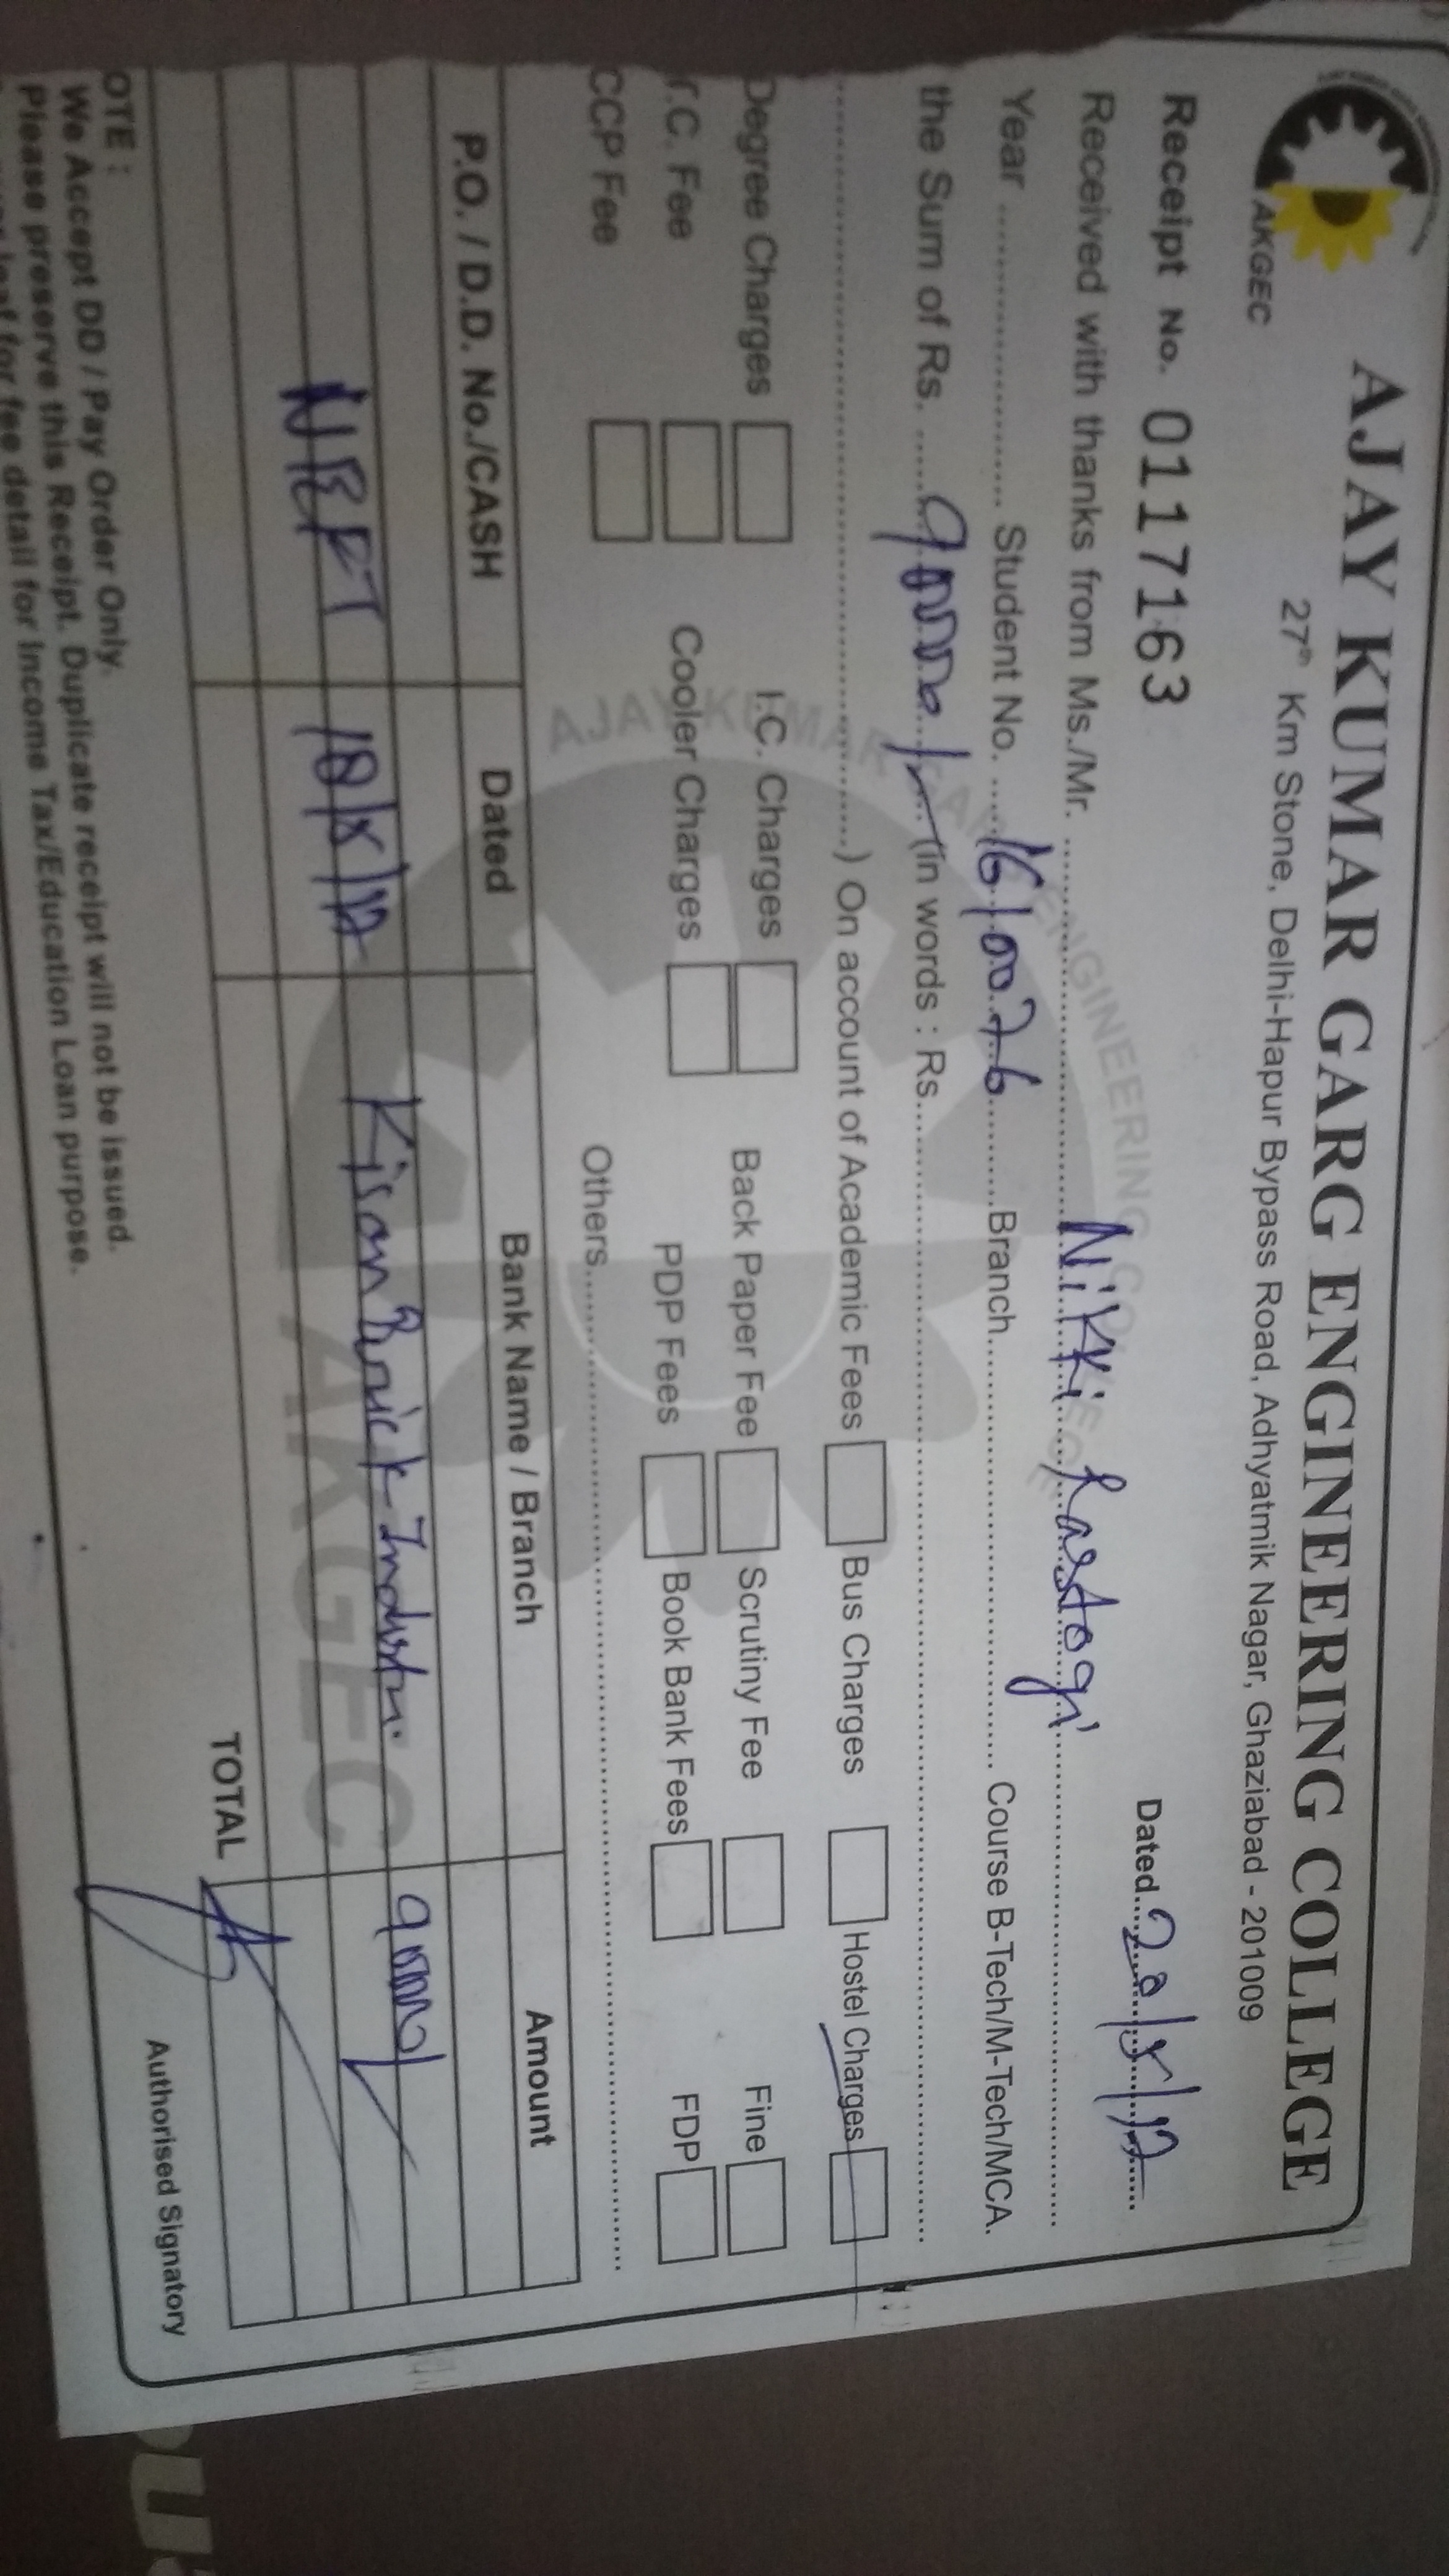 AKGEC
AJAY KUMAR GARG ENGINEERING COLLEGE
27th Km Stone, Delhi-Hapur Bypass Road, Adhyatmik Nagar, Ghaziabad - 201009
Receipt No. 0117163 Dated
Received with thanks from Ms./Mr. Nikki Rastogi
Year Student No. Branch Course B-Tech/M-Tech/MCA.
the Sum of Rs. (in words : Rs.
) On account of Academic Fees Bus Charges Hostel Charges
Degree Charges I.C. Charges Back Paper Fee Scrutiny Fee Fine
T.C. Fee Cooler Charges PDP Fees Book Bank Fees FDP
CCP Fee Others
P.O. / D.D. No./CASH Dated Bank Name / Branch Amount
NEFT
TOTAL
AJAY KUMAR GARG ENGINEERING COLLEGE
AKGEC
OTE :
We Accept DD / Pay Order Only.
Please preserve this Receipt. Duplicate receipt will not be issued.
for fee detail for Income Tax/Education Loan purpose.
Authorised Signatory